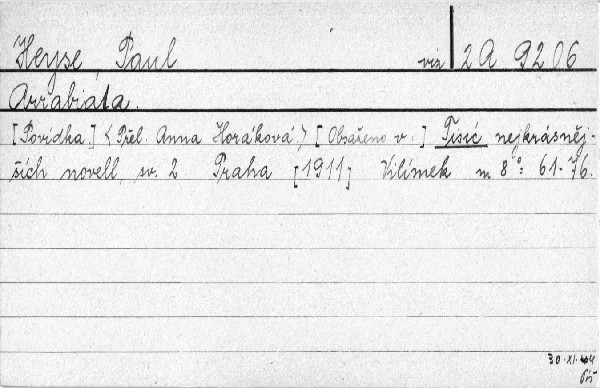 Heyse, Paul viz 2 A 9206
Arrabiata.
[Povídka.] <Přel. Anna Horáková> [Obsaženo v:] Tisíc nejkrásněj-
ších novell, sv. 2 Praha [1911] Vilímek m 8°: 61-76.
30.XI.44